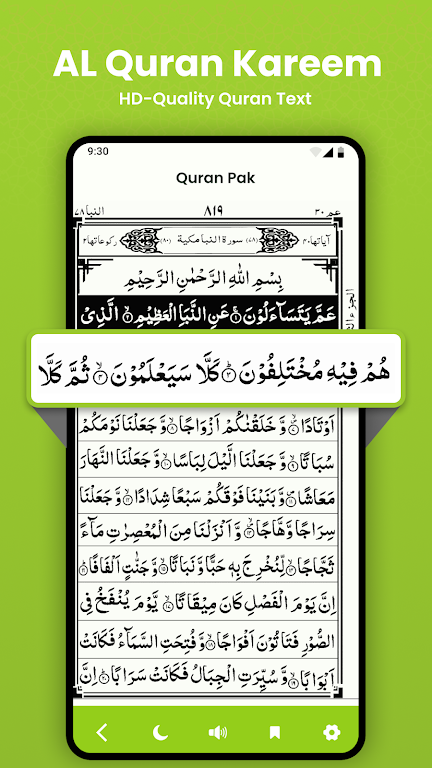 AL Quran Kareem
HD-Quality Quran Text
9:30
Quran Pak
عم ۳۰ ۸۱۹ النبا ۷۸
آیاتها ۴۰ (۷۸) سورة النبا مكية (۸۰) رکوعاتها ۲
بِسْمِ اللّٰهِ الرَّحْمٰنِ الرَّحِيْمِ
عَمَّ يَتَسَآءَلُوْنَ ۱ عَنِ النَّبَاِ الْعَظِيْمِ ۲ الَّذِيْ
هُمْ فِيْهِ مُخْتَلِفُوْنَ ۳ كَلَّا سَيَعْلَمُوْنَ ۴ ثُمَّ كَلَّا
اَوْتَادًا ۷ وَّ خَلَقْنٰكُمْ اَزْوَاجًا ۸ وَّ جَعَلْنَا نَوْمَكُمْ
سُبَاتًا ۹ وَّ جَعَلْنَا الَّيْلَ لِبَاسًا ۱۰ وَّ جَعَلْنَا النَّهَارَ
مَعَاشًا ۱۱ وَّ بَنَيْنَا فَوْقَكُمْ سَبْعًا شِدَادًا ۱۲ وَّ جَعَلْنَا
سِرَاجًا وَّهَّاجًا ۱۳ وَّ اَنْزَلْنَا مِنَ الْمُعْصِرٰتِ مَآءً
ثَجَّاجًا ۱۴ لِّنُخْرِجَ بِهٖ حَبًّا وَّ نَبَاتًا ۱۵ وَّ جَنّٰتٍ اَلْفَافًا ۱۶
اِنَّ يَوْمَ الْفَصْلِ كَانَ مِيْقَاتًا ۱۷ يَّوْمَ يُنْفَخُ فِي
الصُّوْرِ فَتَاْتُوْنَ اَفْوَاجًا ۱۸ وَّ فُتِحَتِ السَّمَآءُ فَكَانَتْ
اَبْوَابًا ۱۹ وَّ سُيِّرَتِ الْجِبَالُ فَكَانَتْ سَرَابًا ۲۰ اِنَّ